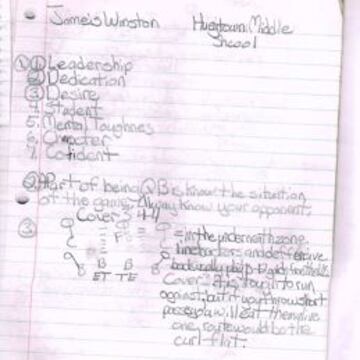 Jameis Winston Hueytown Middle
School
① ① Leadership
② Dedication
③ Desire
4. Student
5. Mental Toughness
6. Character
7. Cofident
② Part of being QB is know the situation
of the game. Always know your opponent.
Cover 3 4-4
③ = in the underneath zone
F linebackers and defensive
B B
ET TE Cover 3 is tough to run
against, but if you throw short
passes you will eat them alive
one route would be the
curl-flat.